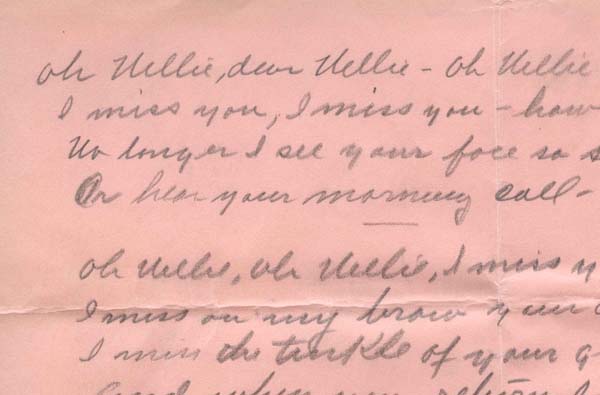 Oh Nellie, dear Nellie - Oh Nellie
I miss you, I miss you - how
No longer I see your face so s
Or hear your morning call -
Oh Nellie, Oh Nellie, I miss y
I miss on my brow your
I miss the tinkle of your g
And when you return I